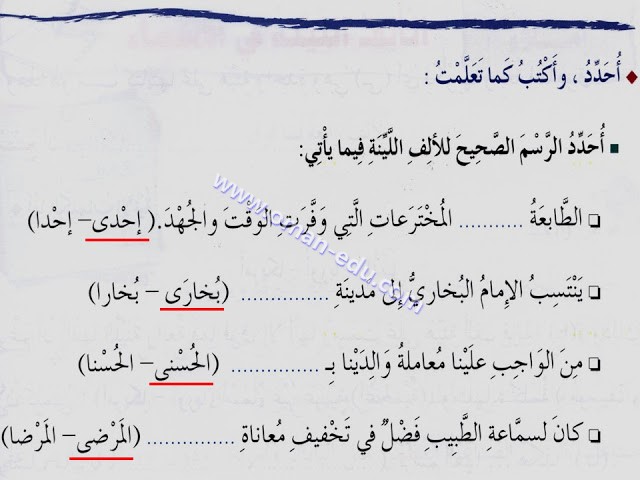 أُحَدِّدُ ، وأَكْتُبُ كَما تَعَلَّمْتُ :
أُحَدِّدُ الرَّسْمَ الصَّحِيحَ للأَلِفِ اللَّيِّنَةِ فِيما يأْتِي:
الطَّابعَةُ ........... المُخْتَرَعاتِ الَّتِي وَفَّرَتِ الوَقْتَ والجُهْدَ.( إحْدى– إحْدا)
يَنْتَسِبُ الإمامُ البُخاريُّ إلى مَدينَةِ ............... (بُخارَى – بُخارا)
مِنَ الوَاجِبِ عَلَيْنا مُعاملةُ وَالدَيْنا بِـ ............... (الحُسْنى– الحُسْنا)
كانَ لسمَّاعةِ الطَّبِيبِ فَضْلٌ في تَخْفيفِ مُعاناةِ ............... (المَرْضى– المَرْضا)
www.oman-edu.com